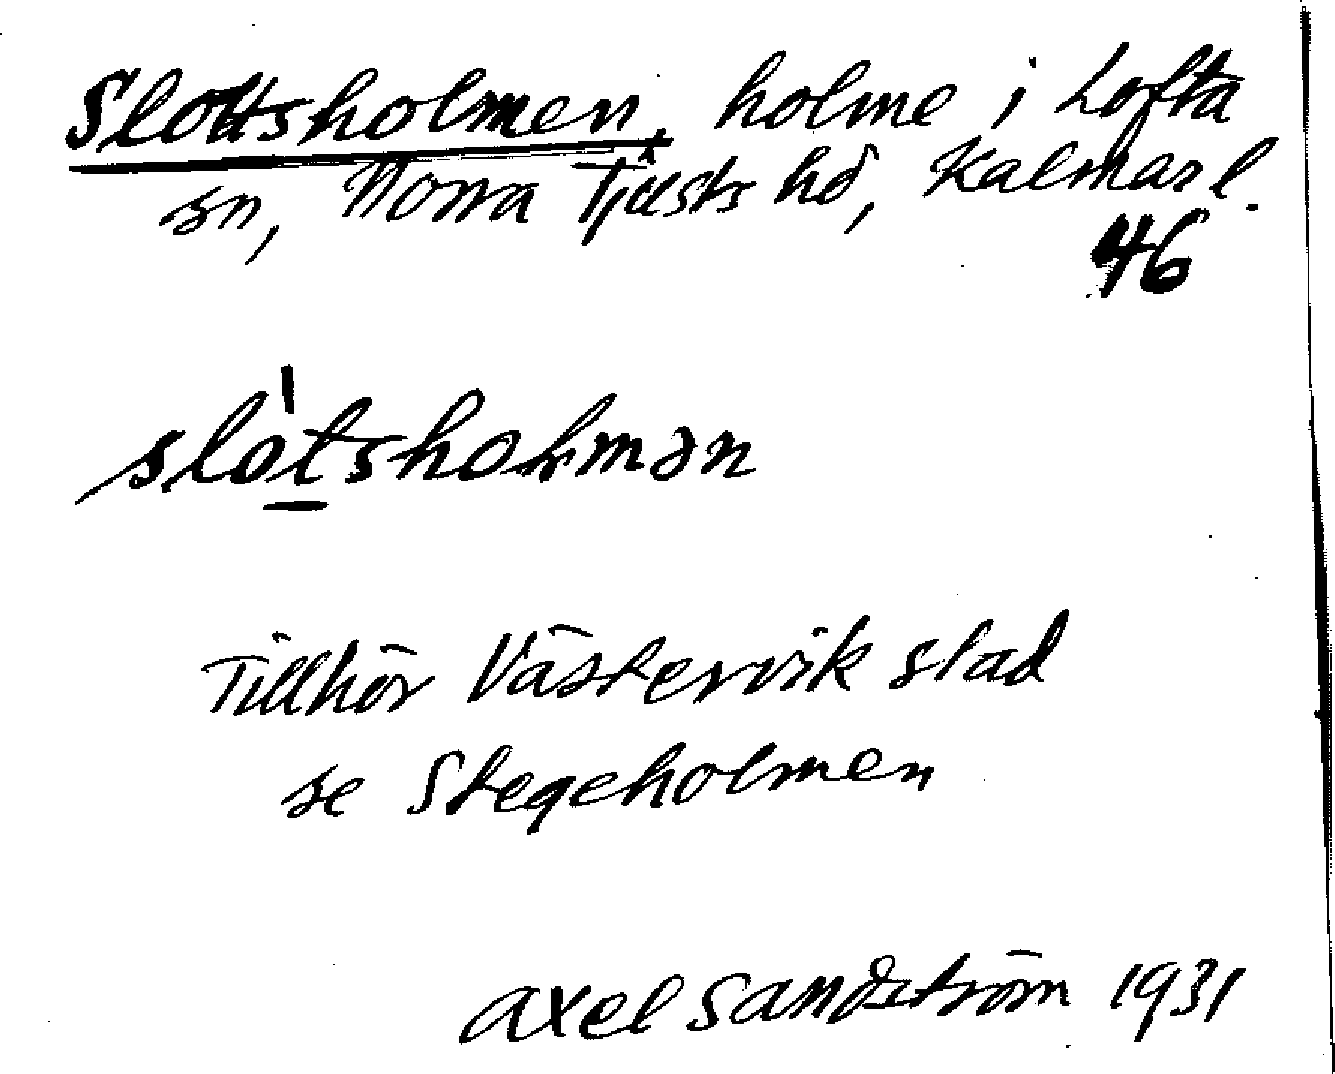 Slottsholmen, holme i Lofta
sn, Norra Tjusts hd, Kalmar l.
46
slòtshoḷmən
Tillhör Västervik stad
se Stegeholmen
Axel Sandström 1931